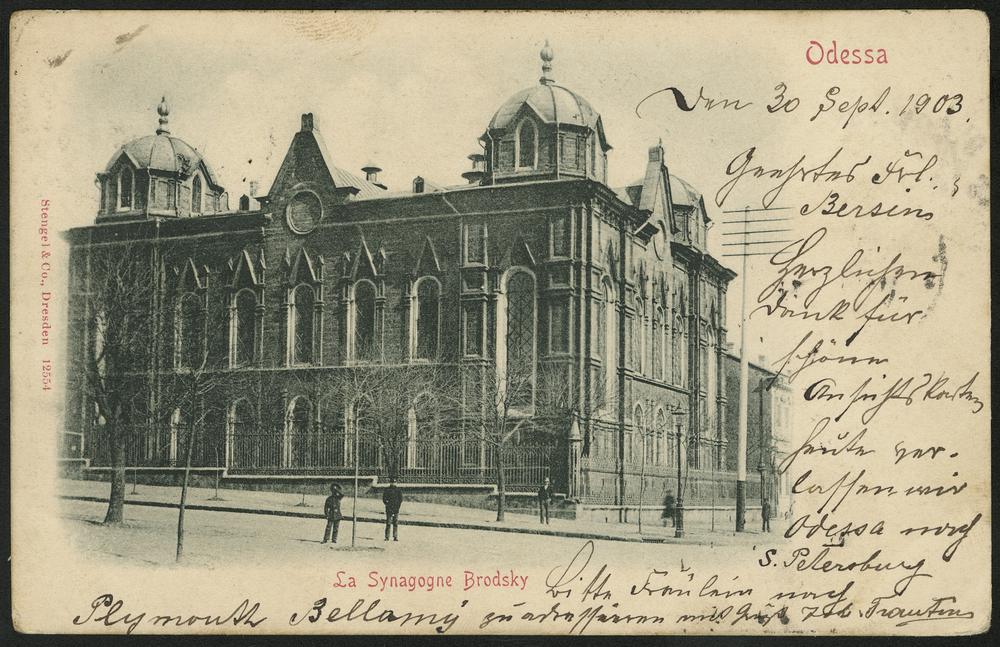 Odessa
Den 30 Sept. 1903.
Geehrtes Frl.
Bersin
Herzlichen
Dank für
schöne
Ansichtskarten
heute ver-
lassen wir
Odessa nach
S. Petersburg
Bitte Fräulein nach
Plymouth Bellamy zu adressieren mit Gruß
La Synagogne Brodsky
Stengel & Co., Dresden 12554